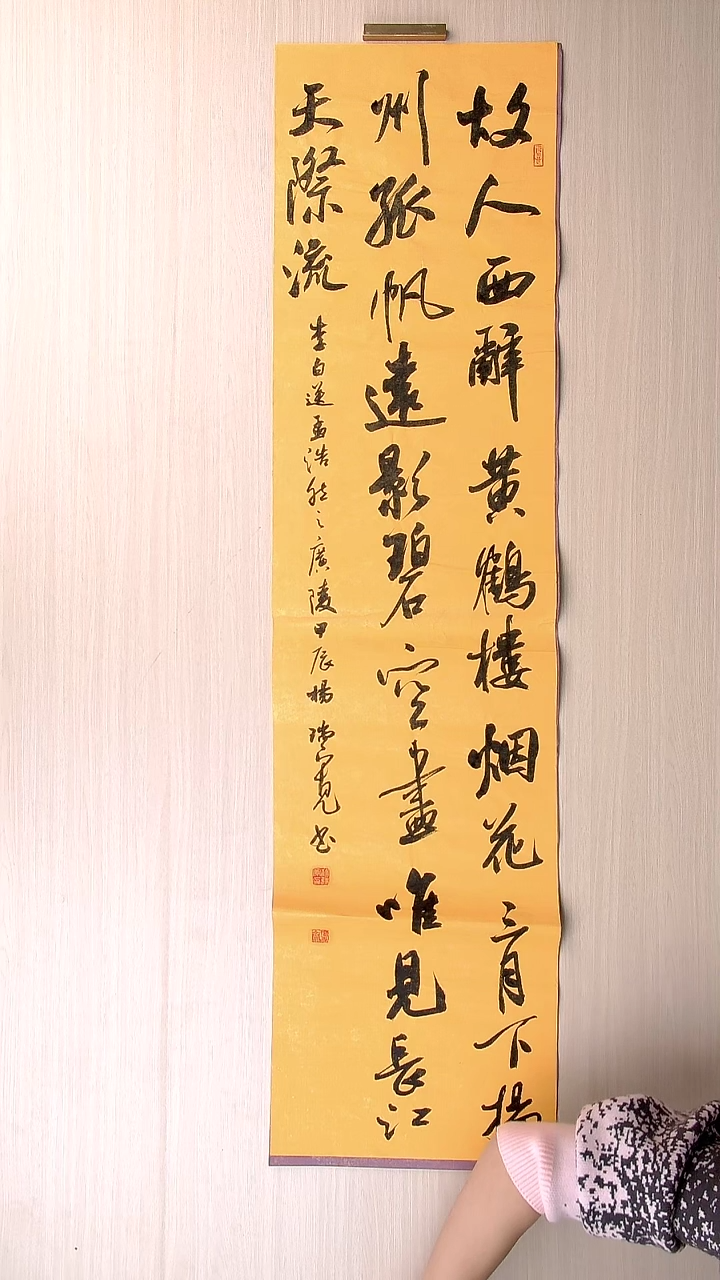 故人西辭黄鶴樓烟花三月下揚
州孤帆遠影碧空盡唯見長江
天際流
李白送孟浩然之廣陵甲辰楊瑞寛书